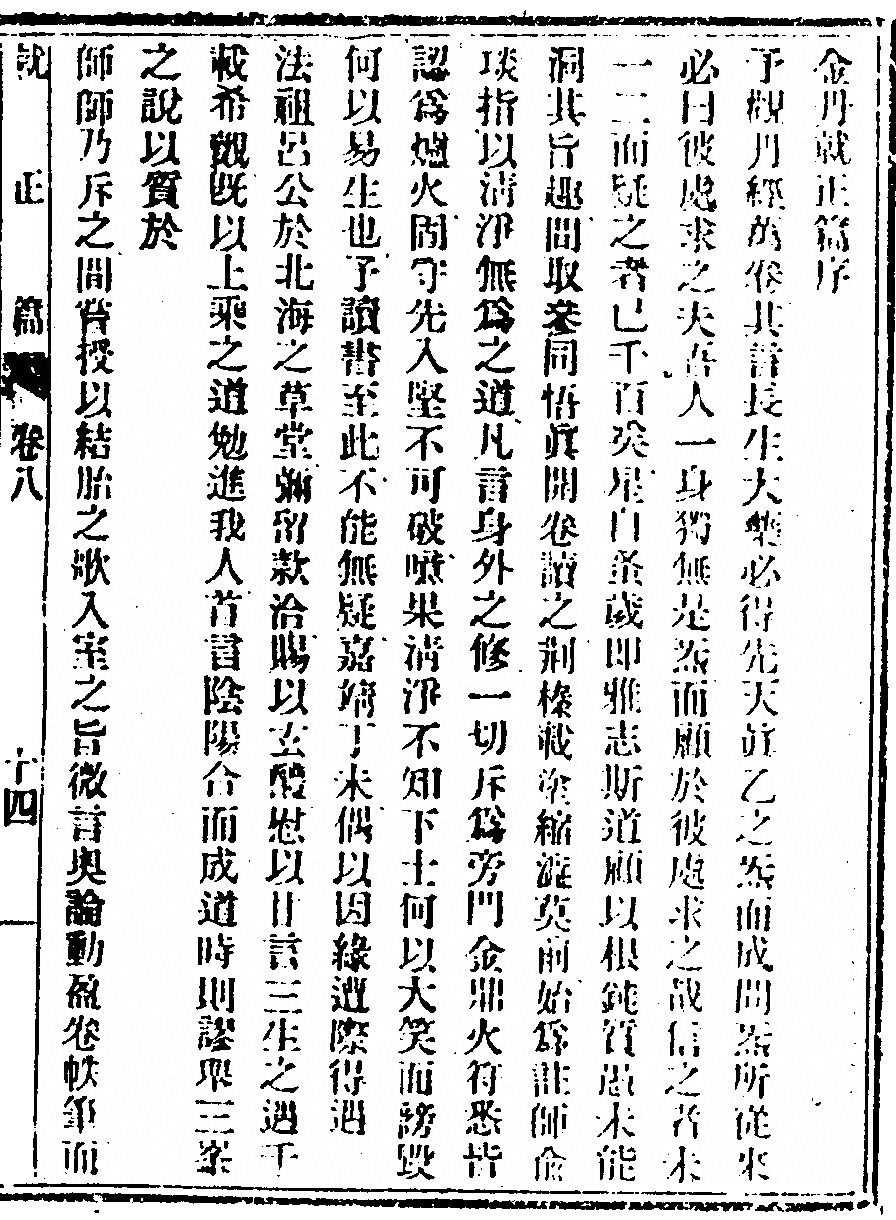 金丹就正篇序
予觀丹經萬卷其言長生大藥必得先天眞乙之炁而成問炁所從來
必曰彼處求之夫吾人一身獨無是炁而顧於彼處求之哉信之者未
一二而疑之者已千百矣星自蚤歲即雅志斯道顧以根鈍質愚未能
洞其旨趣間取叅同悟眞開卷讀之荆榛載塗縮𣥺莫前始爲註師僉
琰指以清淨無爲之道凡言身外之修一切斥爲旁門金鼎火符悉皆
認爲爐火固守先入堅不可破噫果清淨不知下士何以大笑而謗毀
何以易生也予讀書至此不能無疑嘉靖丁未偶以因緣遭際得遇
法祖呂公於北海之草堂彌留款洽賜以玄醴慰以甘言三生之遇千
載希覯旣以上乘之道勉進我人首言陰陽合而成道時則謬舉三峯
之說以質於
師師乃斥之間嘗授以結胎之歌入室之旨微言奥論動盈卷帙筆而
就正篇 卷八 十四